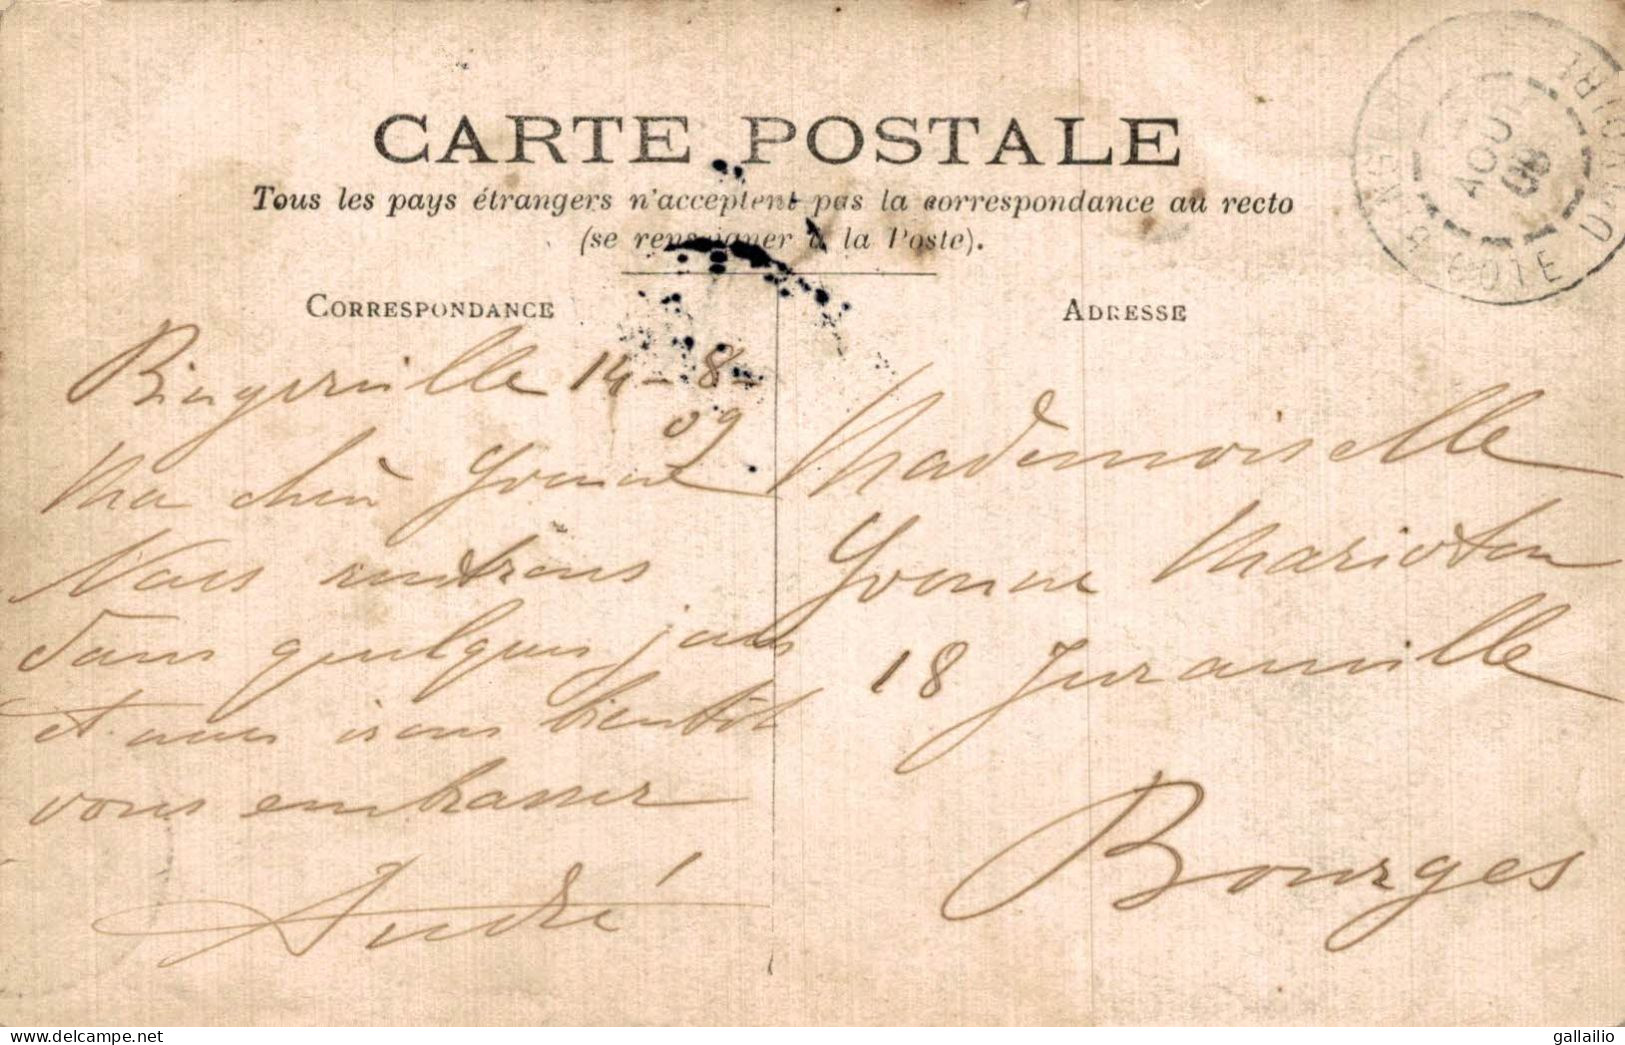 CARTE POSTALE
Tous les pays étrangers n'acceptent pas la correspondance au recto
(se renseigner à la Poste).
CORRESPONDANCE
Bingerville 14-8-
09
Ma chère Yvonne
Nous rentrons
dans quelques jours
et nous irons bientôt
vous embrasser
André
ADRESSE
Mademoiselle
Yvonne Marioton
18 Juranville
Bourges
AOUT
09
COTE D'IVOIRE
gallailio